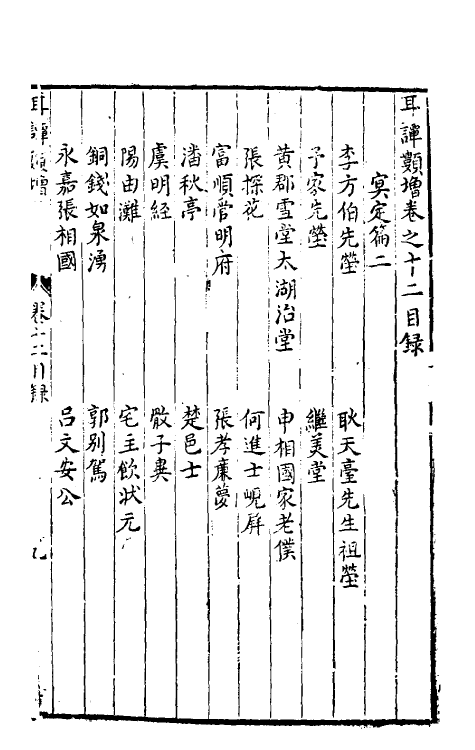 耳譚類增卷之十二目録
冥定篇二
李方伯先塋 耿天臺先生祖塋
予家先塋 繼美堂
黄郡雪堂太湖治堂 申相國家老僕
張探花 何進士峴屏
富順管明府 張孝廉夢
潘秋亭 楚邑士
虞明經 骰子兾
陽由灘 宅主飲狀元
銅錢如泉湧 郭别駕
永嘉張相國 吕文安公
耳譚類增 卷十二目録